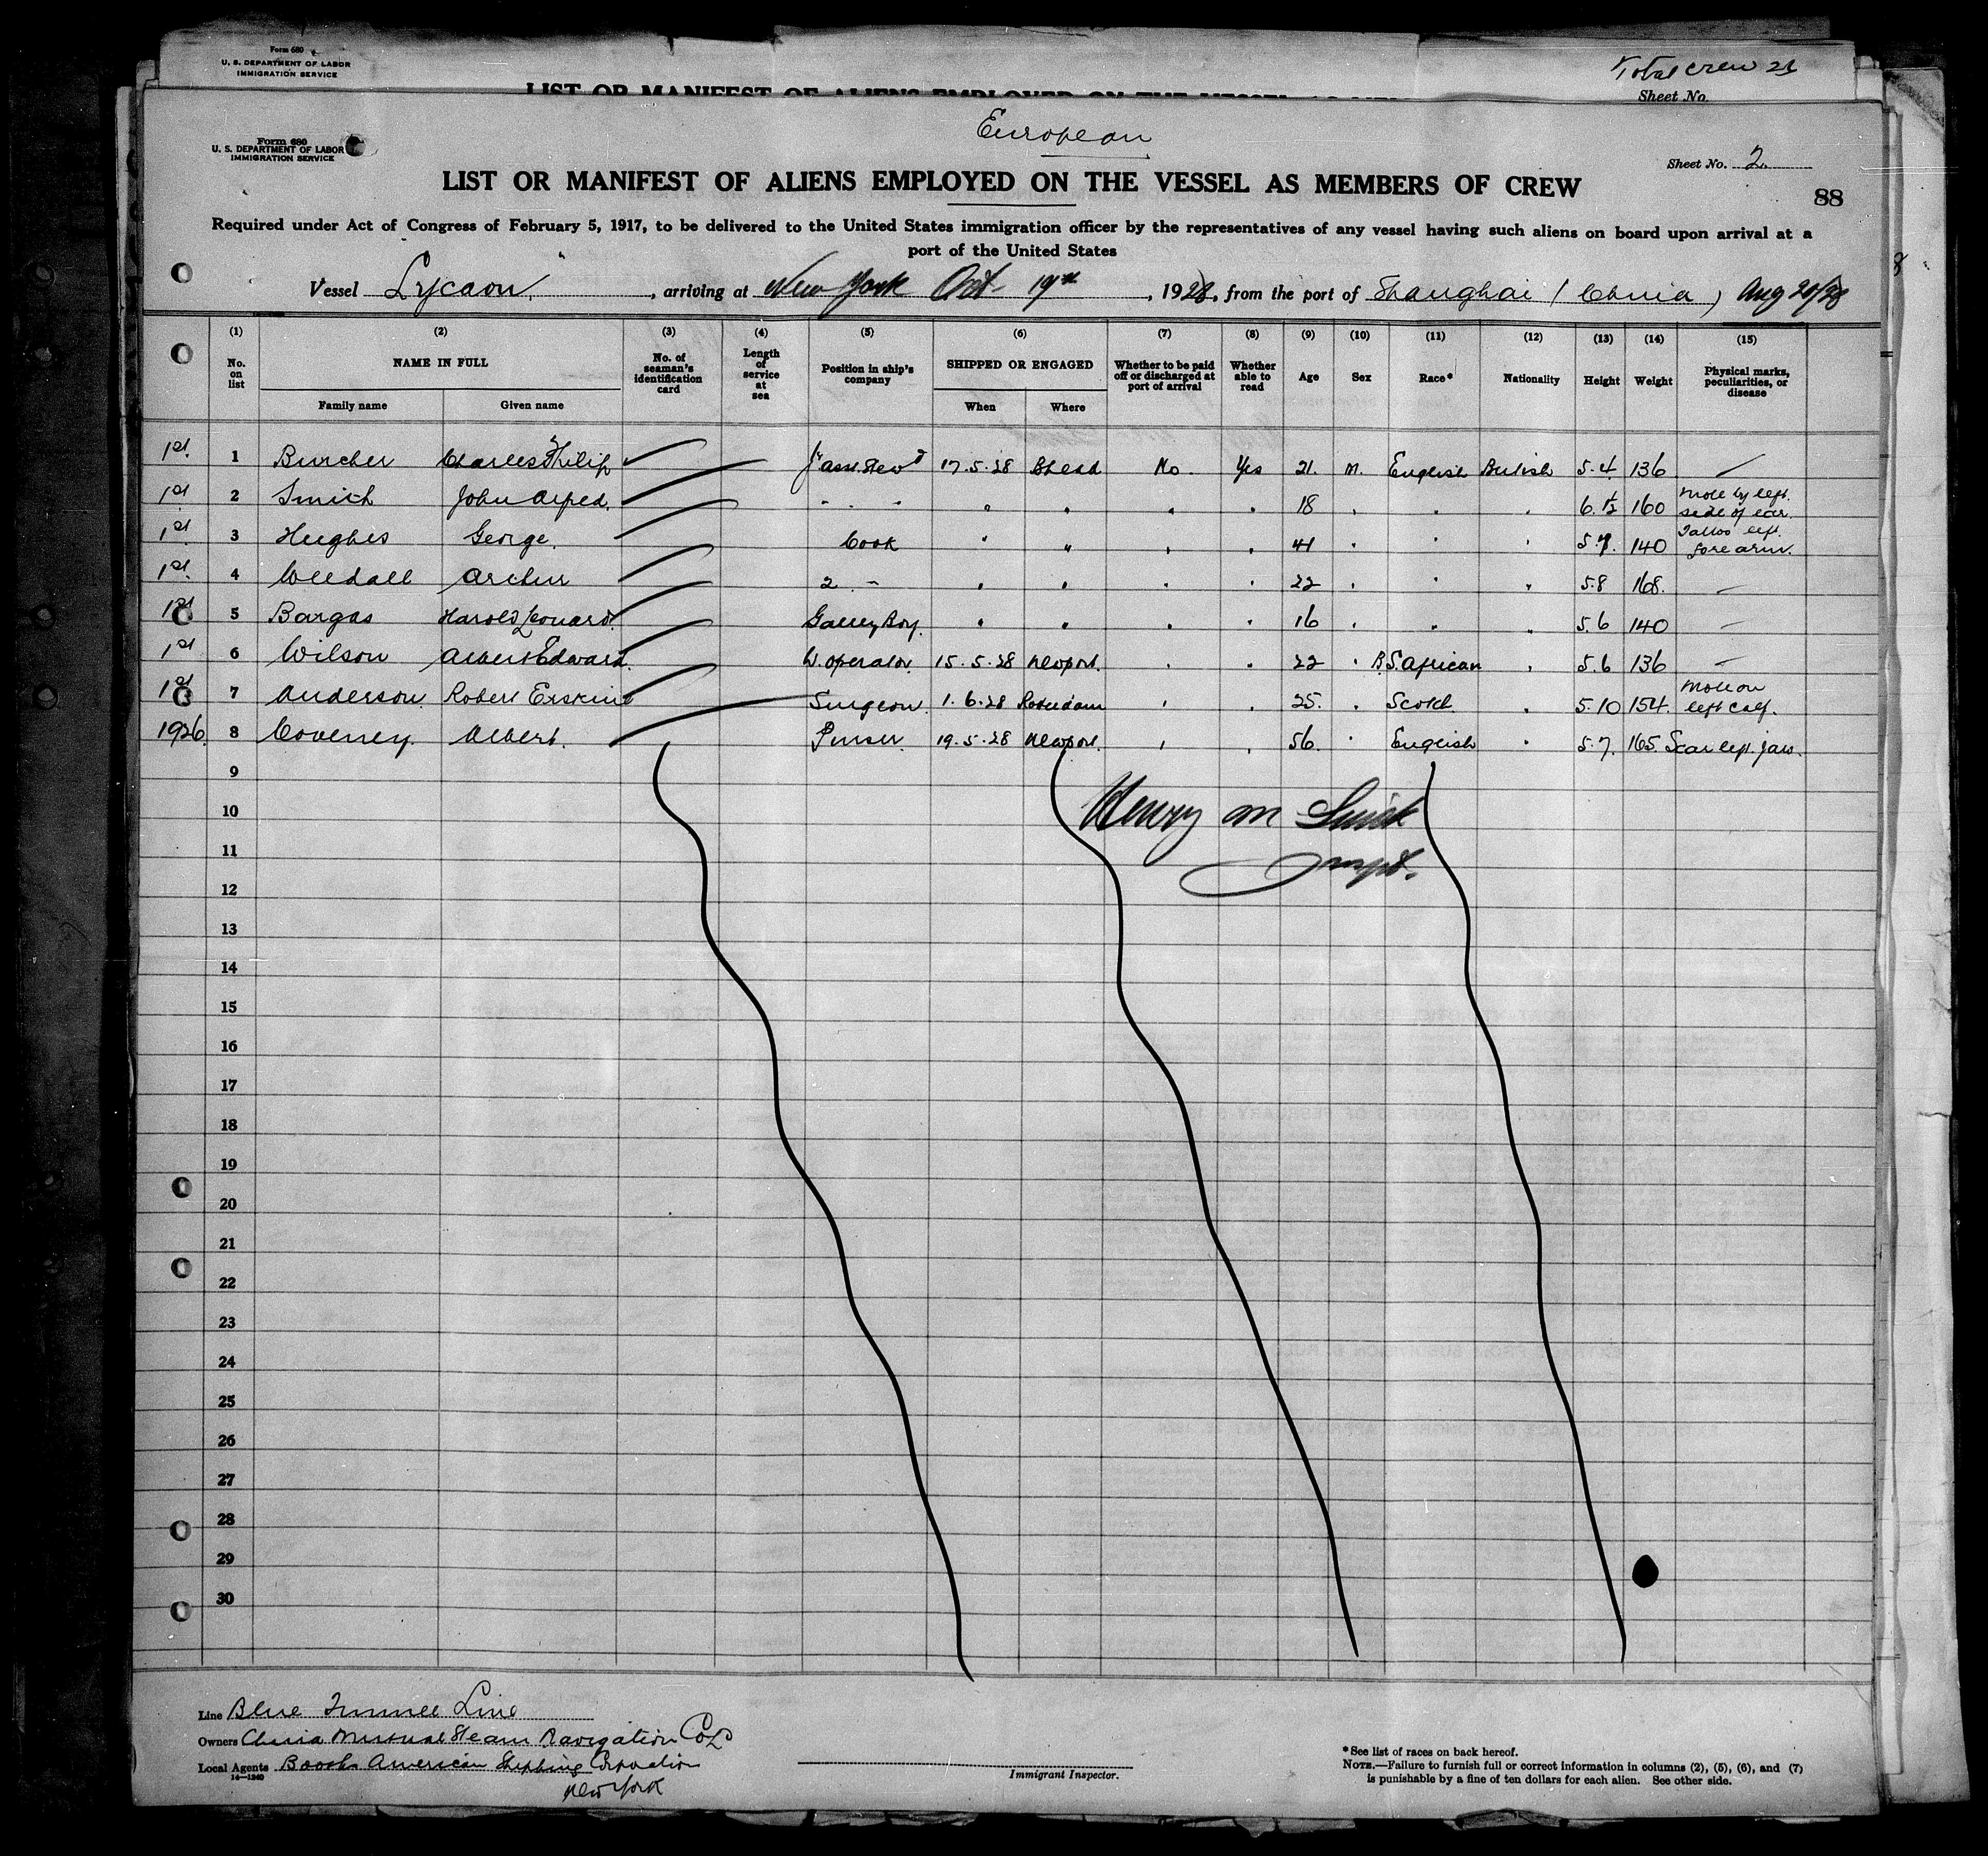 Form 680
U. S. DEPARTMENT OF LABOR
IMMIGRATION SERVICE
Total crew
Sheet No.
LIST OR MANIFEST OF ALIENS EMPLOYED ON THE VESSEL
European
Form 680
U. S. DEPARTMENT OF LABOR
IMMIGRATION SERVICE
Sheet No. 2.
LIST OR MANIFEST OF ALIENS EMPLOYED ON THE VESSEL AS MEMBERS OF CREW
88
Required under Act of Congress of February 5, 1917, to be delivered to the United States immigration officer by the representatives of any vessel having such aliens on board upon arrival at a
port of the United States
Vessel Lycaon, arriving at New York Oct 19th, 1928, from the port of Shanghai (China) Aug 20/28
(1) (2) (3) (4) (5) (6) (7) (8) (9) (10) (11) (12) (13) (14) (15)
No. on list NAME IN FULL Family name Given name No. of seaman's identification card Length of service at sea Position in ship's company SHIPPED OR ENGAGED When Where Whether to be paid off or discharged at port of arrival Whether able to read Age Sex Race* Nationality Height Weight Physical marks, peculiarities, or disease
1st 1 Charles Philip 17.5.28 B'head No. Yes 21. M. English British 5.4 136 /
1st 2 Smith John Alfred. " " " " " " 18 " " " 6.½ 160 Mole by left side of ear.
1st 3 Hughes George. Cook " " " " 41 " " " 5.7. 140 Tattoo left fore arm.
1st 4 Weedall Arthur 2 " " " " " 22 " " " 5.8 168. –
1st 5 Bargas Harold Leonard. Galley Boy. " " " " 16 " " " 5.6 140 –
1st 6 Wilson Albert Edward. W. operator 15.5.28 Newport. " " 22 " B.S. African " 5.6 136 –
1st 7 Anderson. Robert Erskine Surgeon. 1.6.28 Rotterdam " " 25. " Scotch. " 5.10 154. Mole on left calf.
1926. 8 Coveney. Albert. Purser. 19.5.28 Newport. " " 56. " English " 5.7. 165. Scar left jaw.
9
10 Henry M Smith
11
12
13
14
15
16
17
18
19
20
21
22
23
24
25
26
27
28
29
30
Line Blue Funnel Line
Owners China Mutual Steam Navigation Co Ld
Local Agents Booth American Shipping Corporation
14—1240
New York
Immigrant Inspector.
*See list of races on back hereof.
NOTE.—Failure to furnish full or correct information in columns (2), (5), (6), and (7)
is punishable by a fine of ten dollars for each alien. See other side.